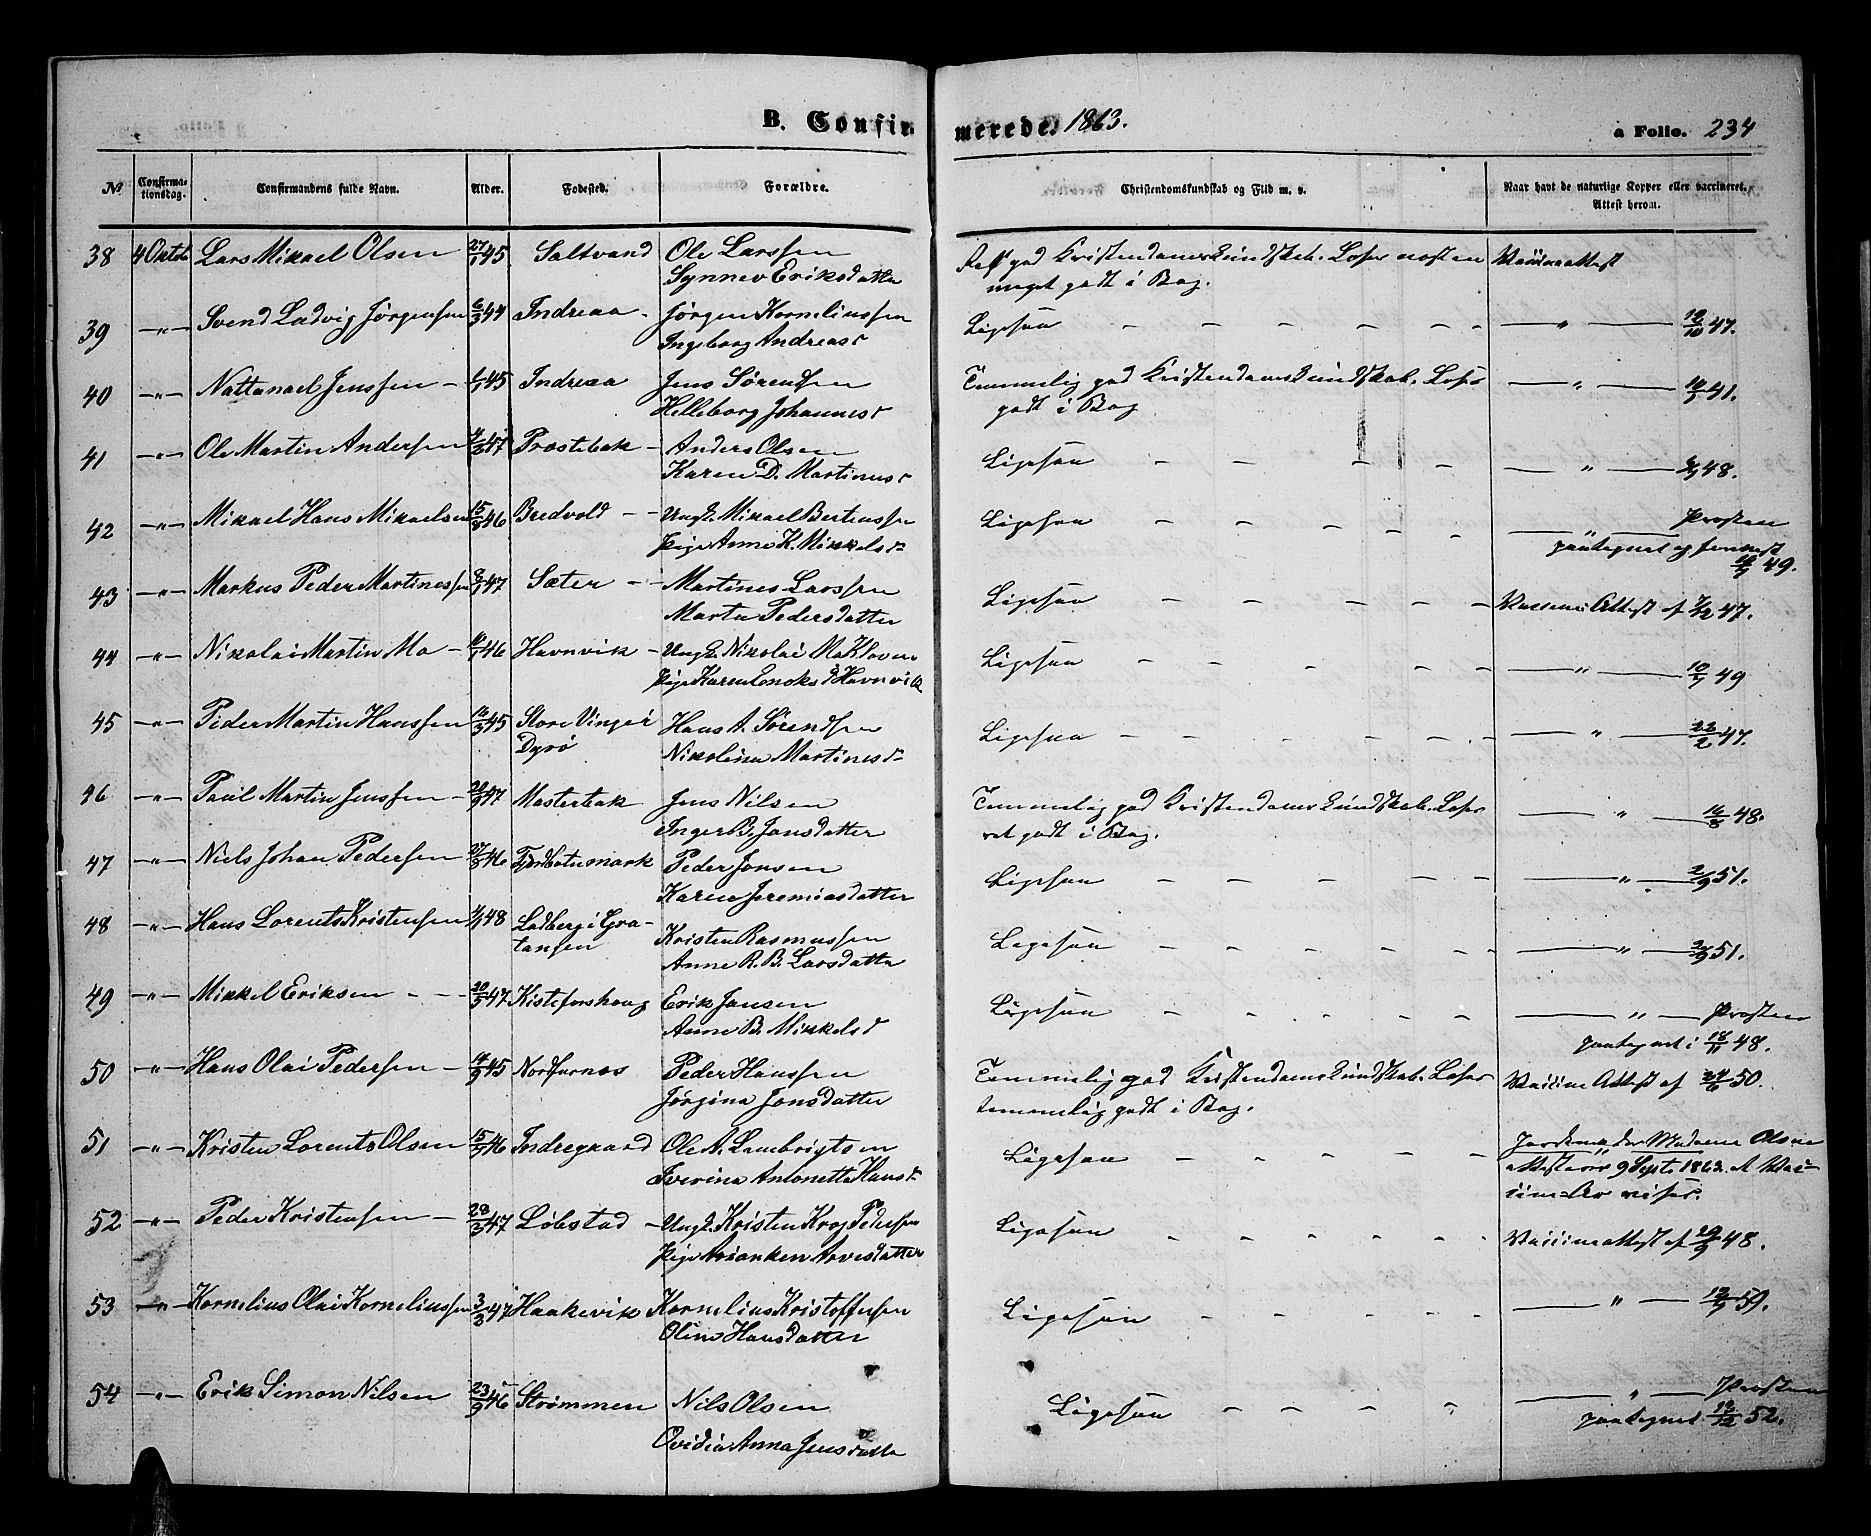 B. Confirmerede. 1863.
a Folio. 234
No
Confirmationsdag.
Confirmandens fulde Navn.
Alder.
Fødested.
Forældre.
Christendomskundskab og Flid m. v.
Naar havt de naturlige Kopper eller vaccineret. Attest herom.
38 4 Oktob Lars Mikael Olsen 27/1 45 Saltvand Ole Larssen
Synnev Eriksdatter
god Kristendomskundskab. Læser næsten
meget godt i Bog.
Vaccineattest
39 -"- Svend Ludvig Jørgensen 6/3 44 Indreaa - Jørgen Korneliussen
Ingeborg Andreasd
Ligesaa - - - - -
-"- 19/10 47.
40 -"- Nattanael Jenssen - 45 Indreaa Jens Sørensen
Helleborg Johannesd
Temmelig god Kristendomskundskab. Læser
godt i Bog
-"- 41.
41 -"- Ole Martin Andersen 47 Prostebak - Anders Olsen
Karen D. Martinusd
Ligesaa - - - -
-"- 48.
42 -"- Mikael Hans Mikaelsen 15/8 46 Bredvold - - Ungk. Mikael Berteussen
Pige Anne K. Mikkelsd
Ligesaa - - - -
-"- Prosten
paategnet
49.
43 -"- Markus Peder Martinessen 8/1 47 Sæter - - Martines Larssen
Marta Pedersdatter
Ligesaa - - - - -
Vaccine Attest af 47.
44 -"- Nikolai Martin Mo - 46 Havnvik - Ungk. Nikolai Mo Kloven
Pige Karen Enoksd Havnvik
Ligesaa - - - -
-"- 10/9 49
45 -"- Peder Martin Hanssen 16/3 45 Store Vinge i
Dyrø
Hans A. Sørensen
Nikolina Martinesd
Ligesaa - - - - -
-"- 22/2 47.
46 -"- Paul Martin Jenssen - 47 Mosterbak Jens Nilsen
Inger B. Jonsdatter
Temmelig god Kristendomskundskab. Læser
ret godt i Bog.
-"- 16/8 48.
47 -"- Niels Johan Pedersen 27/3 46 Fjordbotnmark Peder Jonsen
Karen Jeremiasdatter
Ligesaa - - - - -
-"- 2/9 51.
48 -"- Hans Lorents Kristensen 48 Ladberg i Gra-
tangen
Kristen Rasmussen
Anne R. B. Larsdatter
Ligesaa - - - - -
-"- 2/9 51.
49 -"- Mikkel Eriksen - - - 47 Kisteforshaug Erik Jansen
Anne B. Mikkelsd
Ligesaa - - - - -
-"- Prosten
paategnet i 18/11 48.
50 -"- Hans Olai Pedersen - 45 Norfurnes Peder Hanssen
Jørgina Jonsdatter
Temmelig god Kristendomskundskab. Læser
temmelig godt i Bog.
Vaccine Attest af 24/6 50.
51 -"- Kristen Lorents Olsen 15/5 46 Indregaard Ole A. Lambrigtsen
Iverina Antonetta Hansd
Ligesaa - - - - -
Jordemoder Madame Olsen
attesterer 9 Sept. 1863. at Vac-
cine-Ar vises.
52 -"- Peder Kristensen - 28/3 47 Løbstad - Ungk. Kristen Krog Pedersen
Pige Arianken Arvesdatter
Ligesaa - - - - -
Vaccineattest af 48.
53 -"- Kornelius Olai Korneliussen 3/3 47 Haakevik Kornelius Kristoffersen
Oline Hansdatter
Ligesaa - - - - -
-"- 59.
54 -"- Erik Simon Nilsen 23/9 46 Strømmen Nils Olsen
Ovidia Anna Jensdatter
Ligesaa - - - -
-"- Prosten
paategnet 19/12 52.